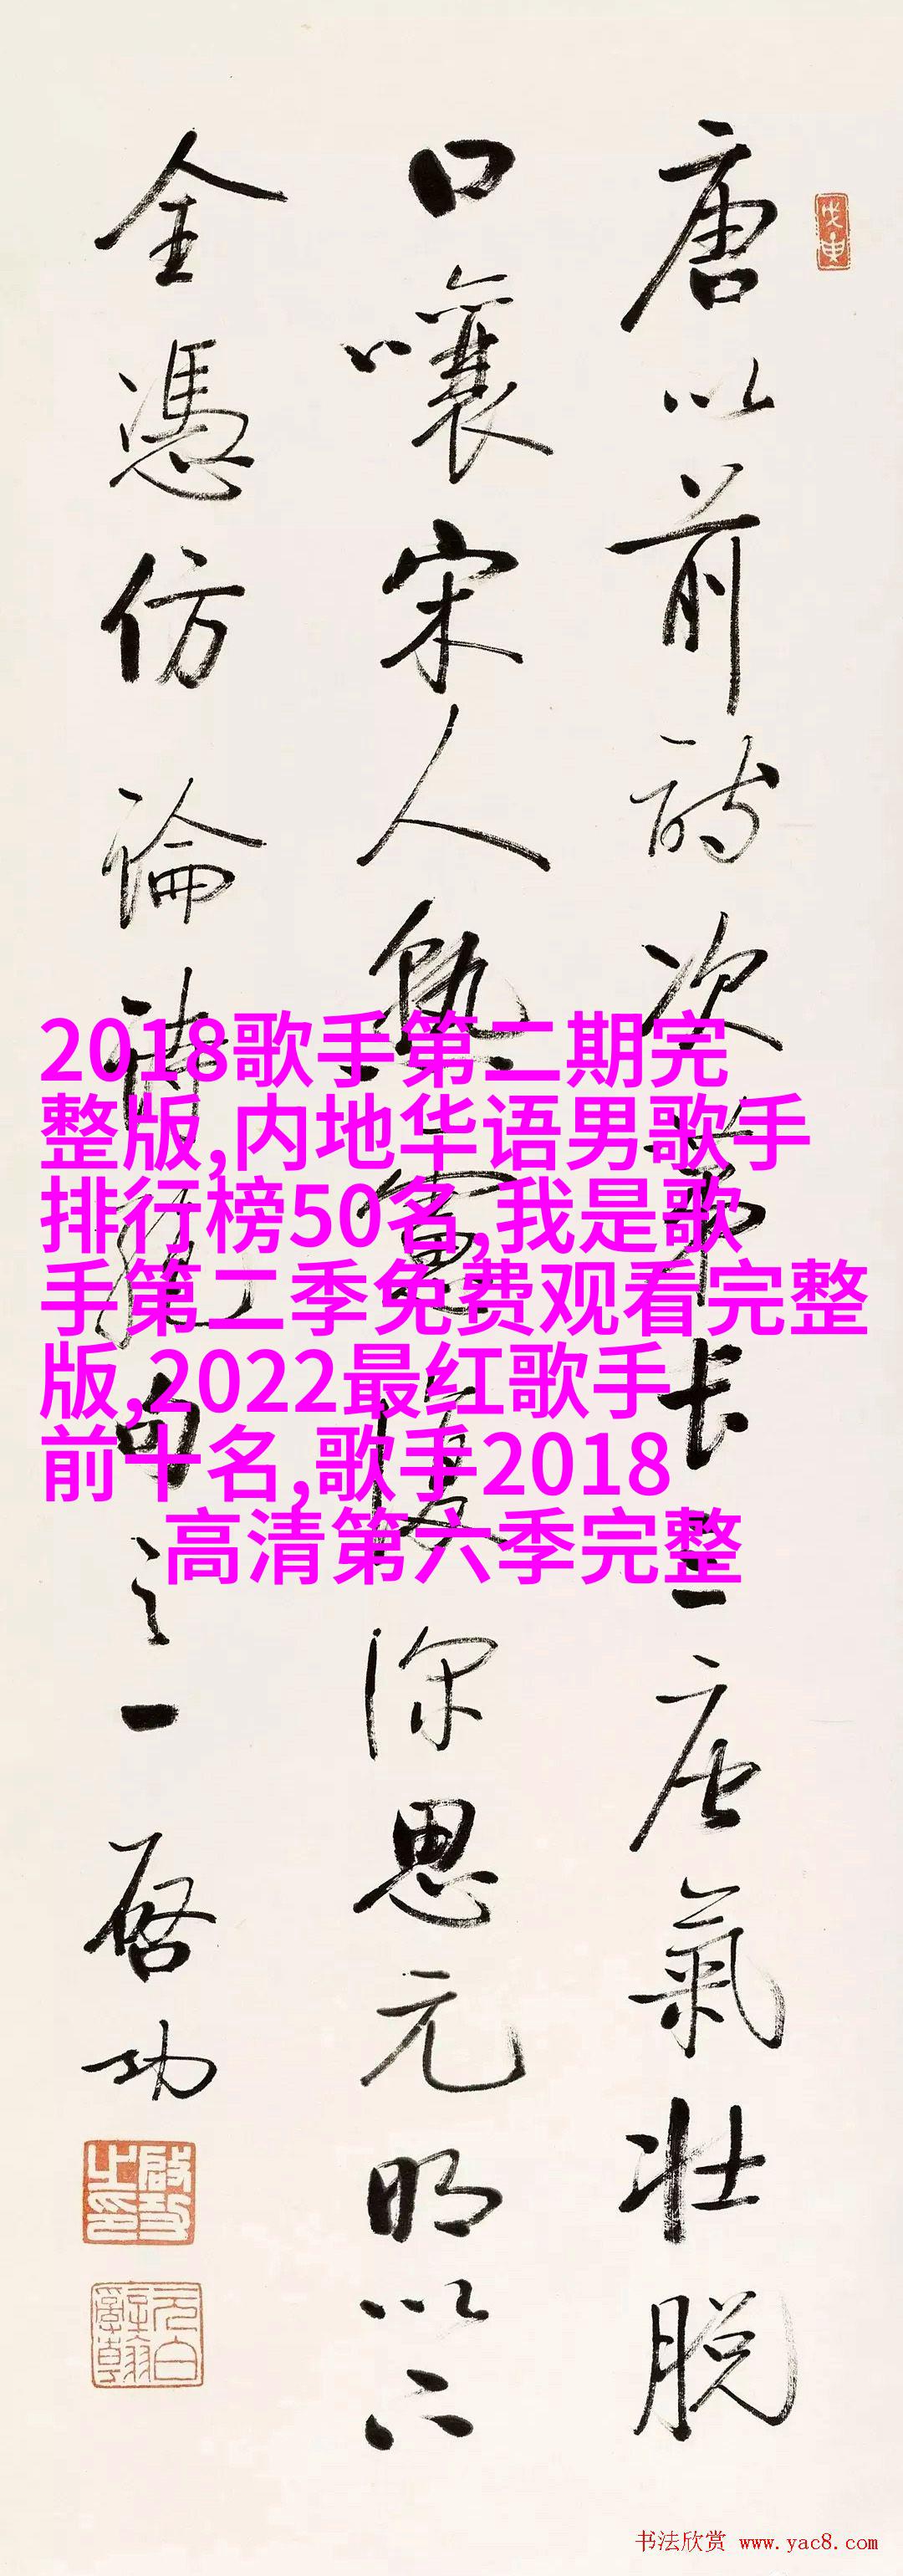 戊申
唐以前詩次第長三唐氣壯脱
口嚷宋人熟慮復深思元明以下
全憑仿 論詩絕句之一 啓功
啟功之印
元白
2018歌手第二期完
整版,内地华语男歌手
排行榜50名,我是歌
手第二季免费观看完整
版,2022最红歌手
前十名,歌手2018
高清第六季完整
书法欣赏 www.yac8.com